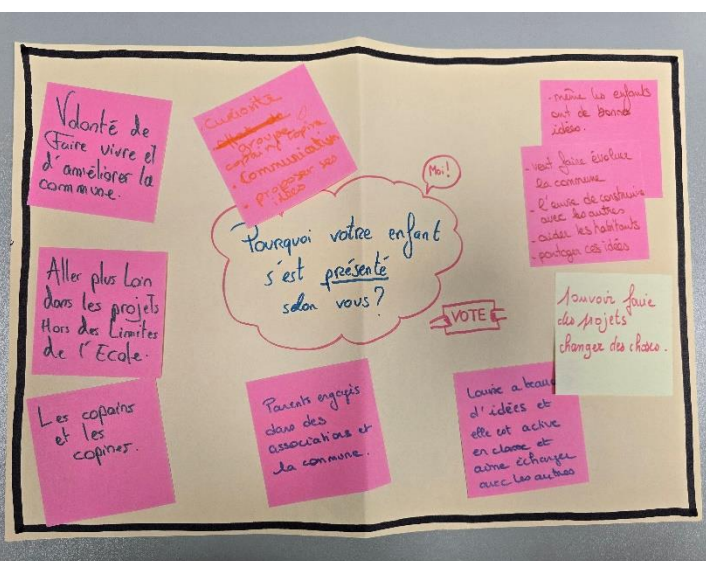 Volonté de
Faire vivre et
d'améliorer la
commune.
curiosité
groupe
copain / copine
• Communication
• proposer ses
idées
- même les enfants
ont de bonnes
idées.
- veut faire évoluer
la commune
- l'envie de construire
avec les autres
- aider les habitants
- partager ces idées
Moi!
Pourquoi votre enfant
s'est présenté
selon vous?
VOTE
Aller plus Loin
dans les projets
Hors des Limites
de l'Ecole.
Pouvoir faire
des projets
changer des choses.
Les copains
et les
copines.
Parents engagés
dans des
associations et
la commune.
Louise a beaucoup
d'idées et
elle est active
en classe et
aime échanger
avec les autres